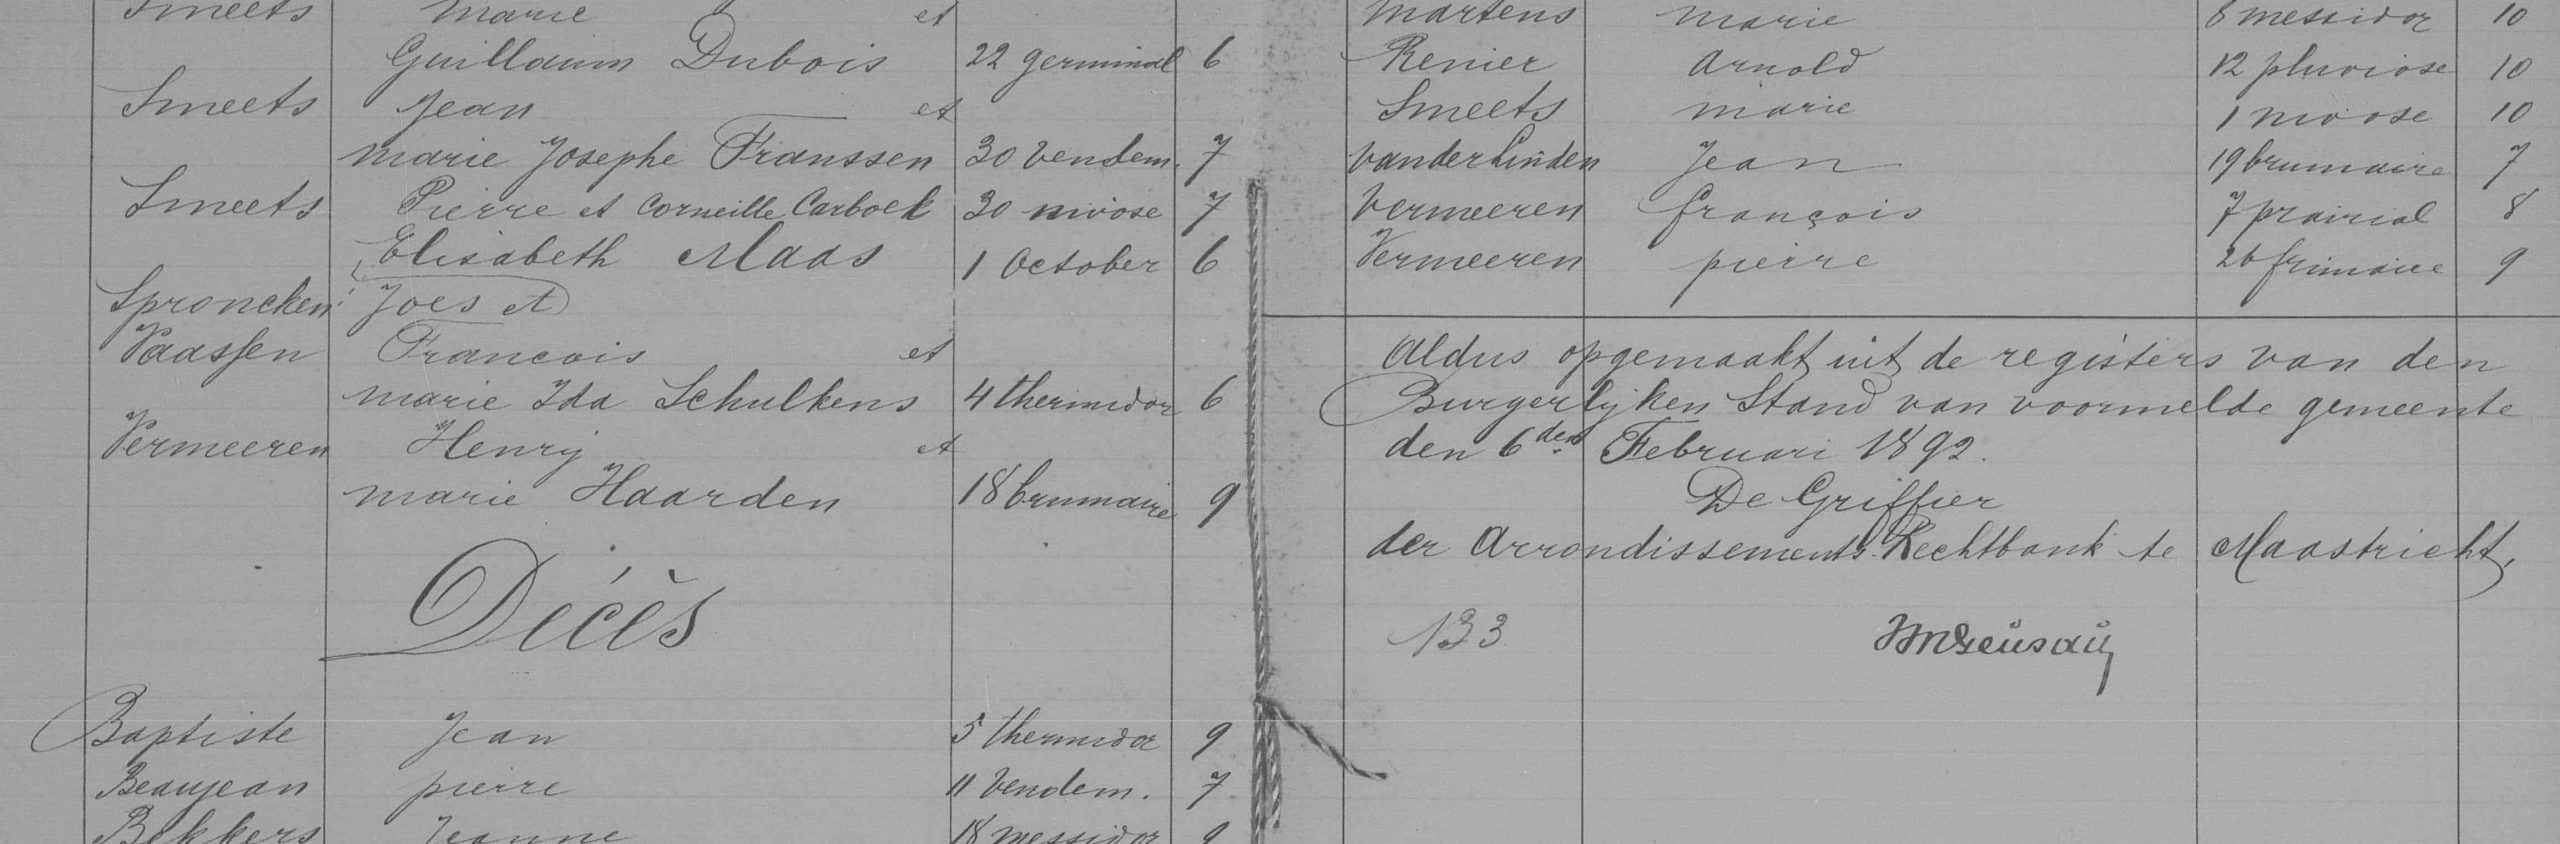 Smeets Marie et
Guillaum Dubois 22 germinal 6
Smeets Jean et
marie Josephe Franssen 30 Vendem. 7
Smeets Pierre et Corneille Carboek 30 nivose 7
Elisabeth Maas 1 October 6
Sproncken Joes et
Vaassen Francois et
marie Ida Schulkens 4 thermidor 6
Vermeeren Henry et
marie Haarden 18 brumaire 9
Décès
Baptiste Jean 5 thermidor 9
Beaujean pierre 11 Vendem. 7
Bekkers Jeanne 18 messidor 9
Martens Marie 8 messidor 10
Renier Arnold 12 pluviose 10
Smeets marie 1 nivose 10
Vanderlinden Jean 19 brumaire 7
Vermeeren françois 7 prairial 8
Vermeeren pierre 26 frimaire 9
Aldus opgemaakt uit de registers van den
Burgerlijken Stand van voormelde gemeente
den 6den Februari 1892.
De Griffier
der Arrondissements Rechtbank te Maastricht,
133